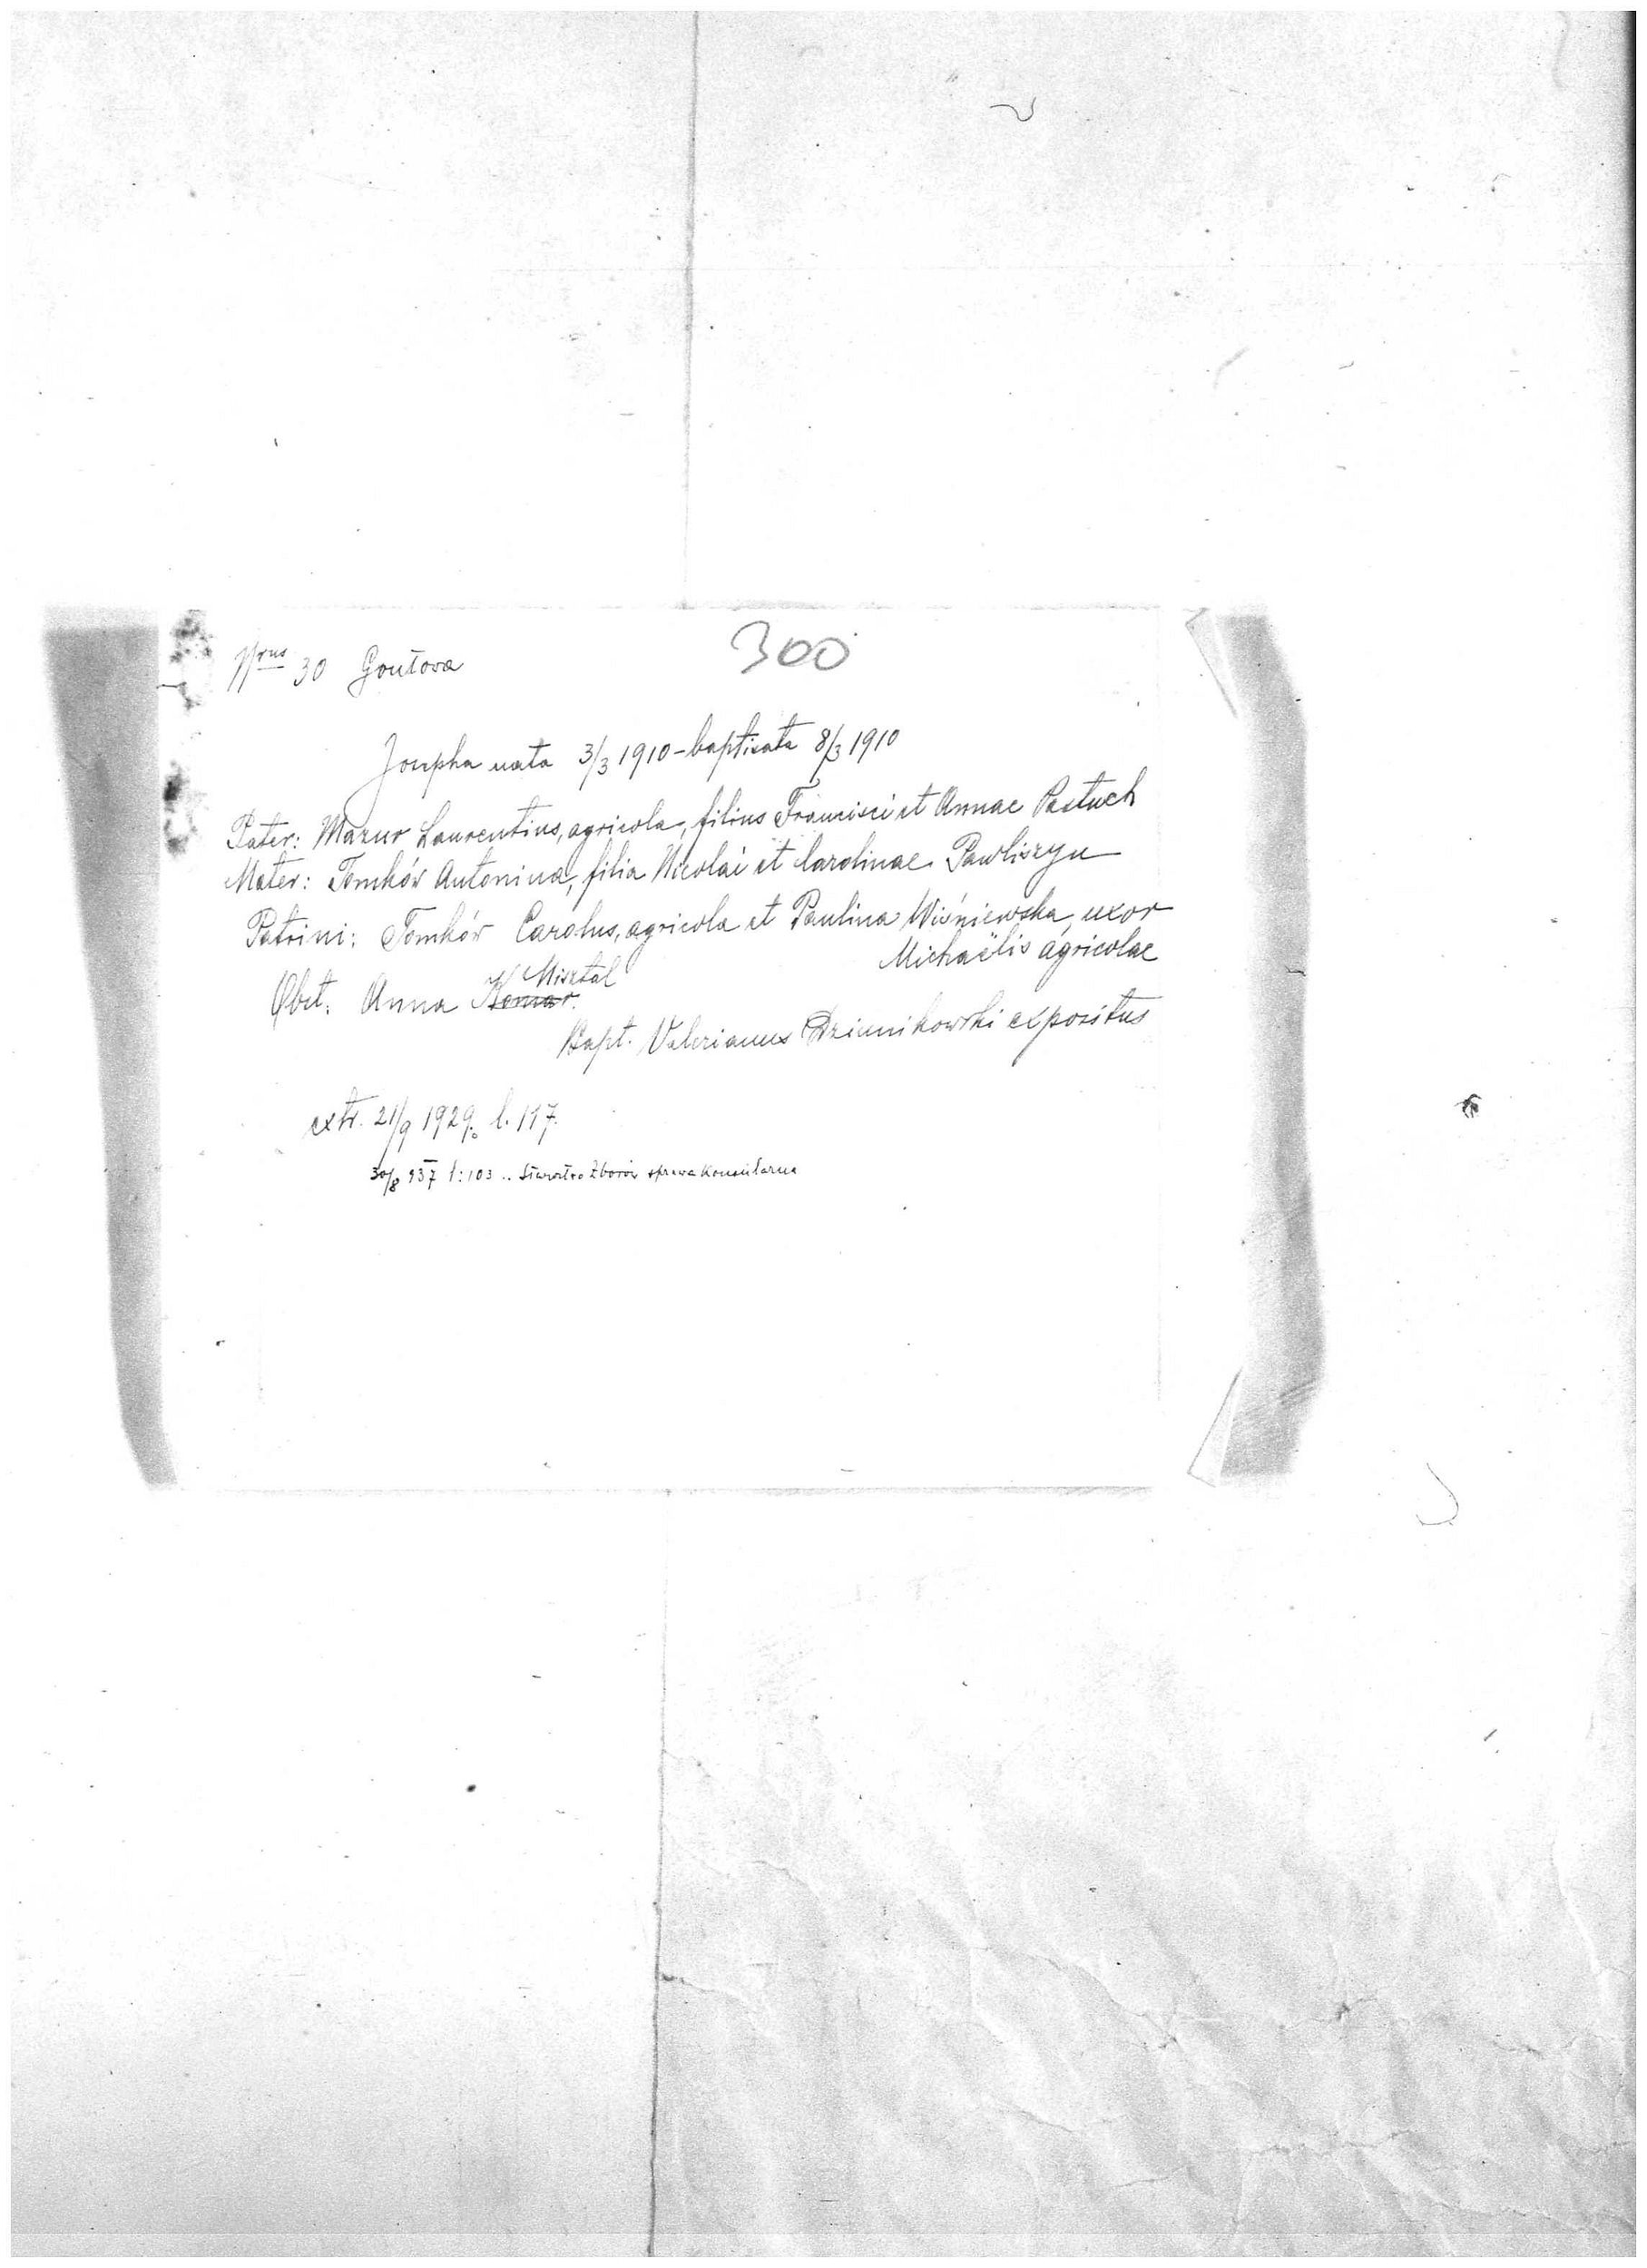 Nrus 30 Goutova
300
Josepha nata 3/3 1910 - baptisata 8/3 1910
Pater: Mazur Laurentius, agricola, filius Francisci et Annae Pastuch
Mater: Tomków Antonina, filia Nicolai et Carolinae Pawliszyn
Patrini: Tomków Carolus, agricola et Paulina Wiśniewska, uxor
Michaëlis agricolae
Misztal
Obst. Anna Komar.
Bapt. Valerianus Dziunikowski expositus
extr. 21/9 1929. l. 117.
30/8 937 l: 103 .. Starostwo Zborów sprawa konsularna